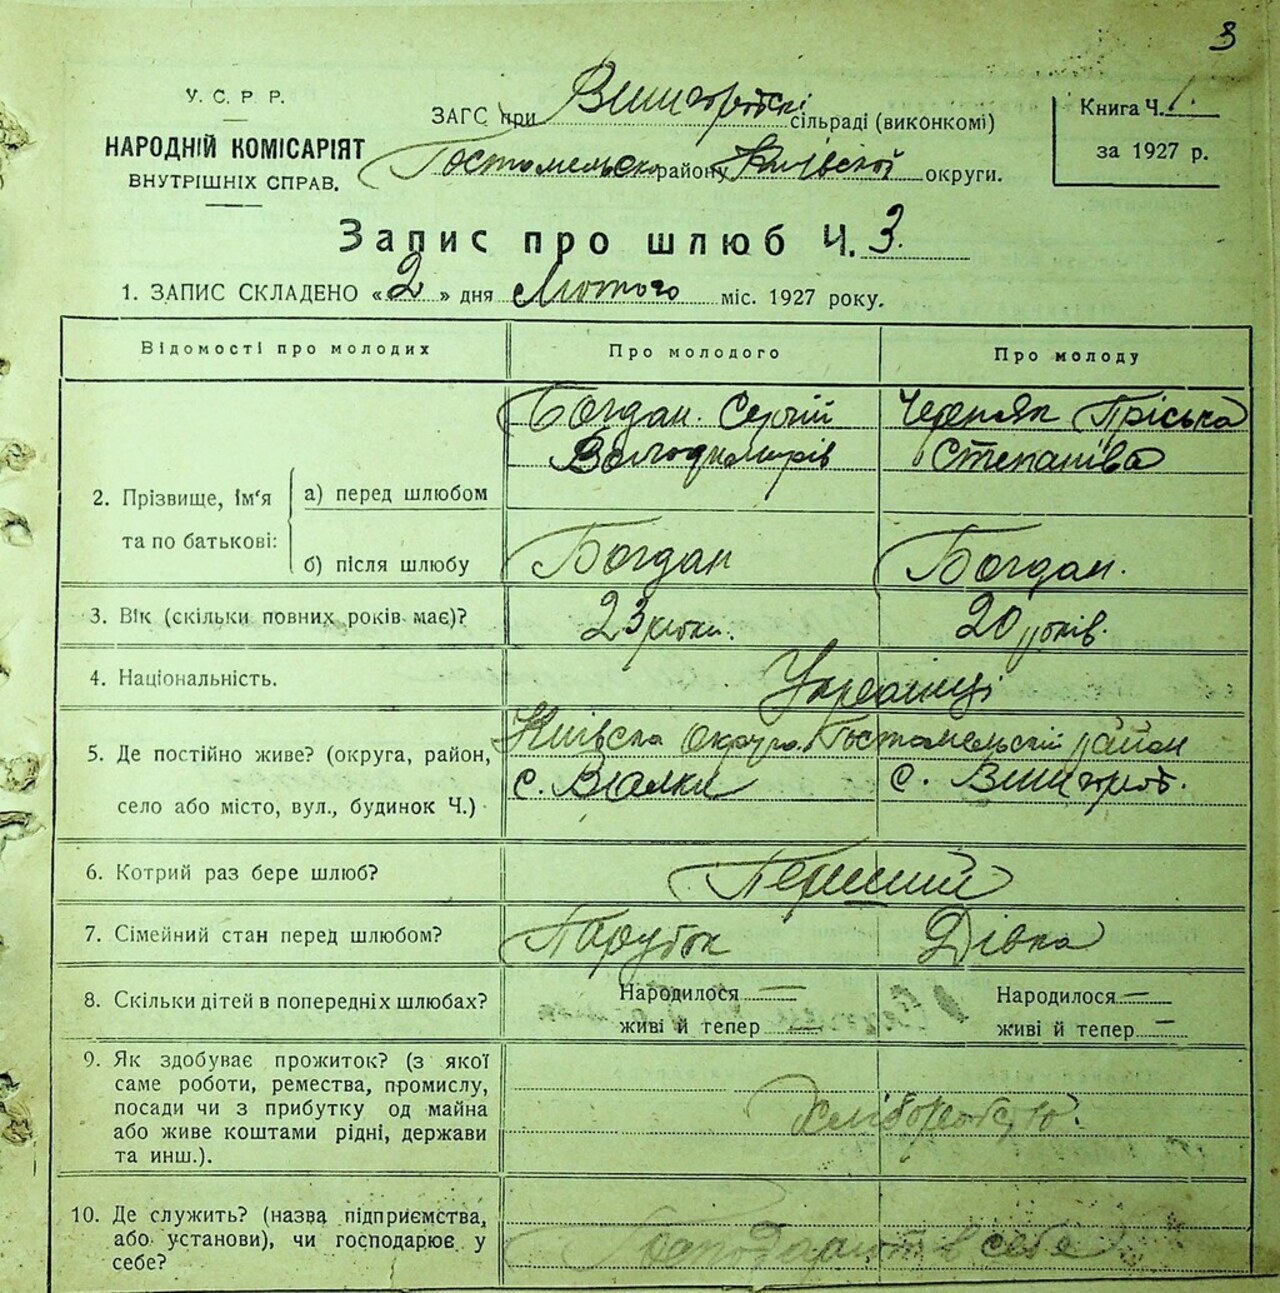 3
У. С. Р. Р.
НАРОДНІЙ КОМІСАРІЯТ
ВНУТРІШНІХ СПРАВ.
ЗАГС при Вишгородскі сільраді (виконкомі)
Гостомельск району Київської округи.
Книга Ч. 1.
за 1927 р.
Запис про шлюб Ч. 3.
1. ЗАПИС СКЛАДЕНО «2» дня Лютого міс. 1927 року.
Відомості про молодих
Про молодого
Про молоду
2. Прізвище, ім'я та по батькові:
а) перед шлюбом
Богдан. Сергій
Володимирів
Черпяк Пріська
Степанівa
б) після шлюбу
Богдан
Богдан.
3. Вік (скільки повних років має)?
23 роки.
20 років.
4. Національність.
Українці
5. Де постійно живе? (округа, район,
село або місто, вул., будинок Ч.)
Київска округа. Гостомельскій район
с. Валки
с. Вишгород.
6. Котрий раз бере шлюб?
Перший
7. Сімейний стан перед шлюбом?
Парубок
Дівка
8. Скільки дітей в попередніх шлюбах?
Народилося —
живі й тепер —
Народилося —
живі й тепер —
9. Як здобуває прожиток? (з якої
саме роботи, ремества, промислу,
посади чи з прибутку од майна
або живе коштами рідні, держави
та инш.).
Хліборобством.
10. Де служить? (назва підприємства,
або установи), чи господарює у
себе?
Господарют в себе